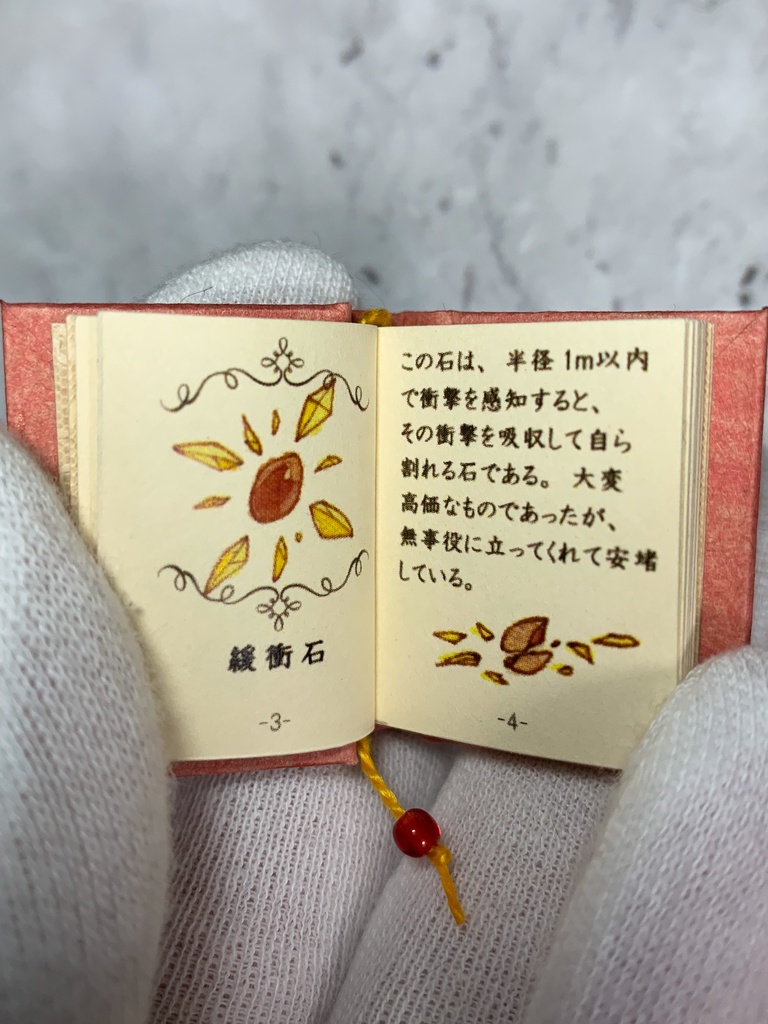 緩衝石
-3-
この石は、半径1m以内
で衝撃を感知すると、
その衝撃を吸収して自ら
割れる石である。大変
高価なものであったが、
無事役に立ってくれて安堵
している。
-4-